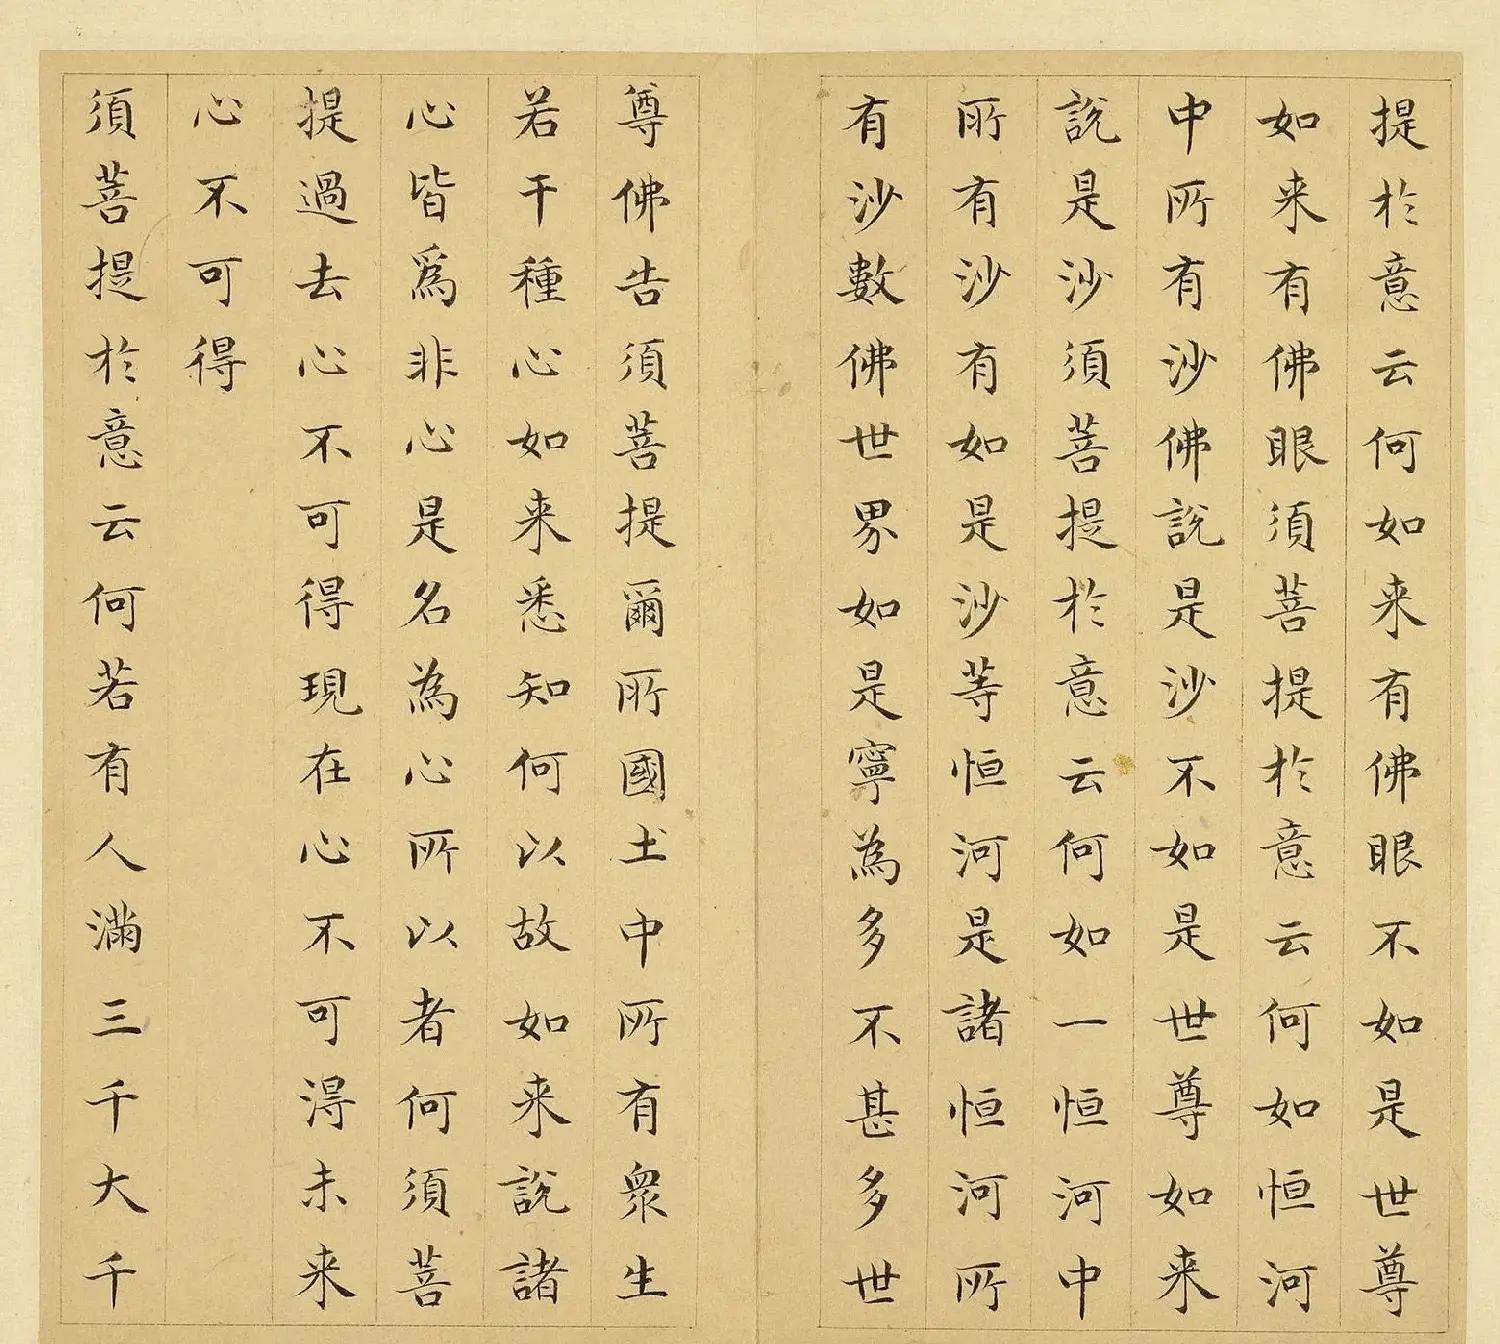 提於意云何如来有佛眼不如是世尊
如来有佛眼須菩提於意云何如恒河
中所有沙佛說是沙不如是世尊如来
說是沙須菩提於意云何如一恒河中
所有沙有如是沙等恒河是諸恒河所
有沙數佛世界如是寧為多不甚多世
尊佛告須菩提爾所國土中所有衆生
若干種心如来悉知何以故如来說諸
心皆爲非心是名為心所以者何須菩
提過去心不可得現在心不可得未来
心不可得
須菩提於意云何若有人滿三千大千